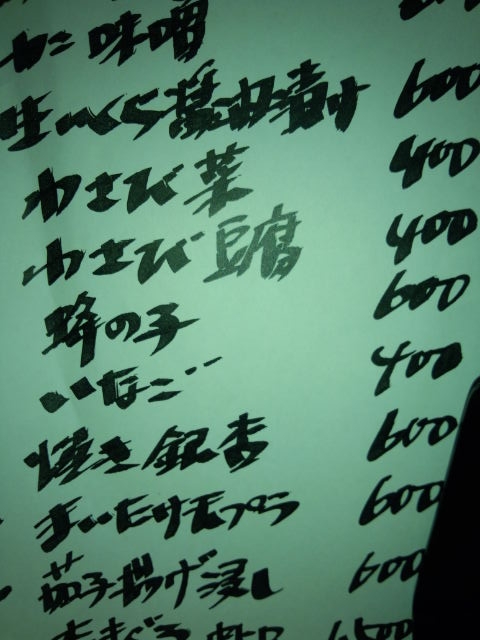 かに味噌
生いくら醤油漬け 600
わさび菜 400
わさび豆腐 400
蜂の子 600
いなご 400
焼き銀杏 600
まいたけ天プラ 600
茄子揚げ浸し 600